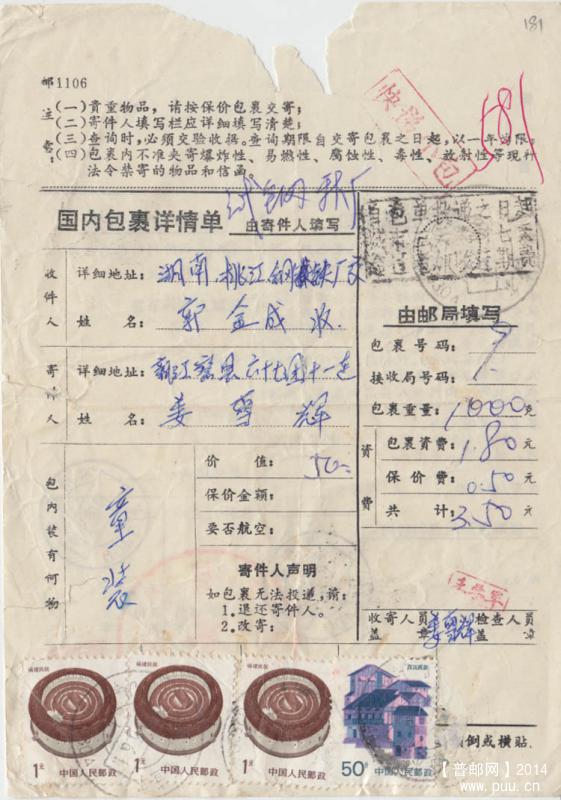 181
邮1106
快递小包
581
注意:
(一)贵重物品,请按保价包裹交寄;
(二)寄件人填写栏应详细填写清楚;
(三)查询时,必须交验收据。查询期限自交寄包裹之日起,以一年为限;
(四)包裹内不准夹寄爆炸性、易燃性、腐蚀性、毒性、放射性等现种
法令禁寄的物品和信函。
国内包裹详情单 由寄件人填写
收件人
详细地址: 湖南桃江钢铁厂交
姓名: 郭金成收.
寄件人
详细地址: 新江霍县六十七团十一连
姓名: 姜雪辉
包内装有何物
童装
价值: 50=
保价金额:
要否航空:
寄件人声明
如包裹无法投递,请:
1.退还寄件人。
2.改寄:
由邮局填写
包裹号码: 9
接收局号码: 1.
包裹重量: 1000克
资费
包裹资费: 1.80元
保价费: 0.50元
共计: 3.50元
收寄人员盖章
检查人员盖章
姜雪辉
福建民居
1元 中国人民邮政
福建民居
1元 中国人民邮政
福建民居
1元 中国人民邮政
50分 中国人民邮政
倒或横贴.
【普邮网】2014
www.puu.cn